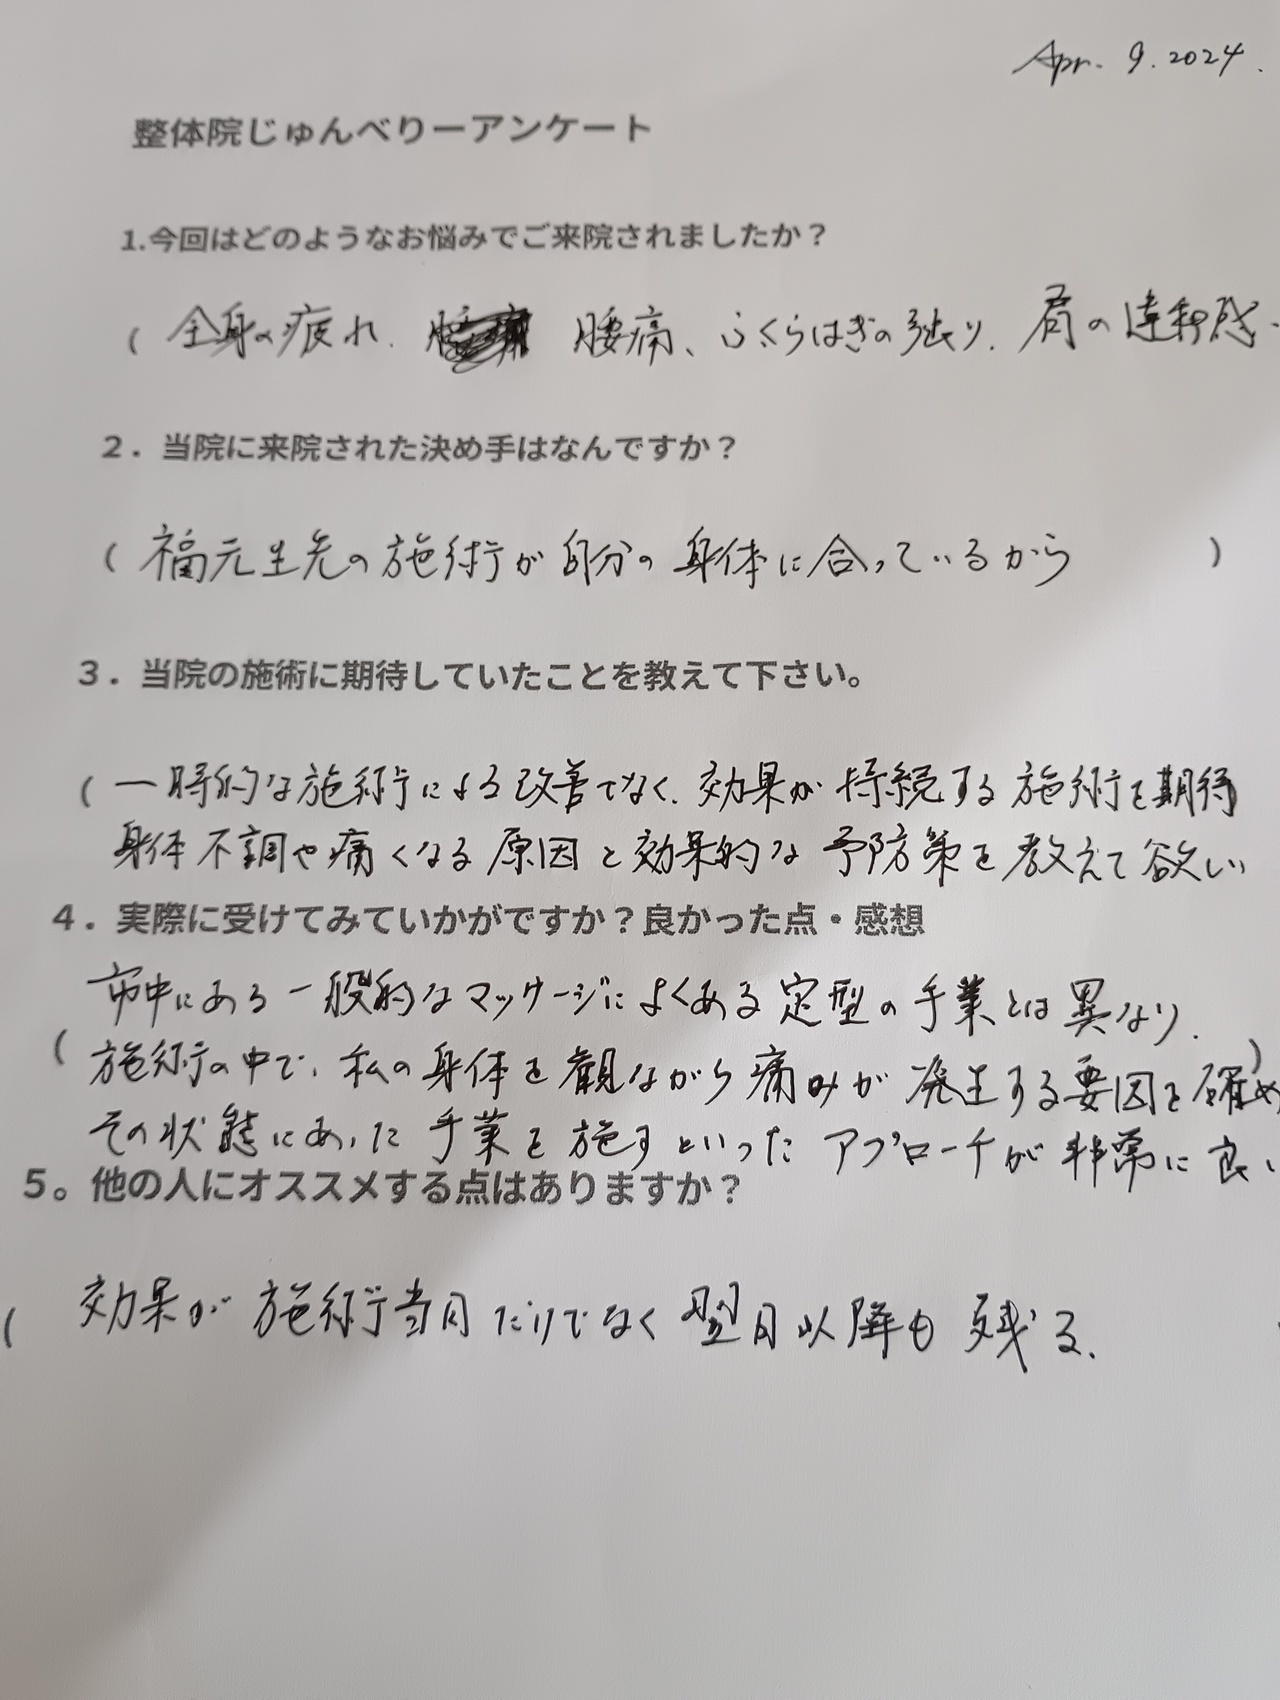 Apr. 9. 2024.
整体院じゅんべりーアンケート
1.今回はどのようなお悩みでご来院されましたか？
( 全身の疲れ、 腰痛、ふくらはぎの張り、肩の違和感
２．当院に来院された決め手はなんですか？
( 福元生先の施術が自分の身体に合っているから )
３．当院の施術に期待していたことを教えて下さい。
( 一時的な施術による改善でなく、効果が持続する施術を期待
身体不調や痛くなる原因と効果的な予防策を教えて欲しい
４．実際に受けてみていかがですか？良かった点・感想
市中にある一般的なマッサージによくある定型の手業とは異なり、
( 施術の中で、私の身体を観ながら痛みが発生する要因を確め )
その状態にあった手業を施すといったアプローチが非常に良い
５。他の人にオススメする点はありますか？
( 効果が施術当日だけでなく翌日以降も残る。